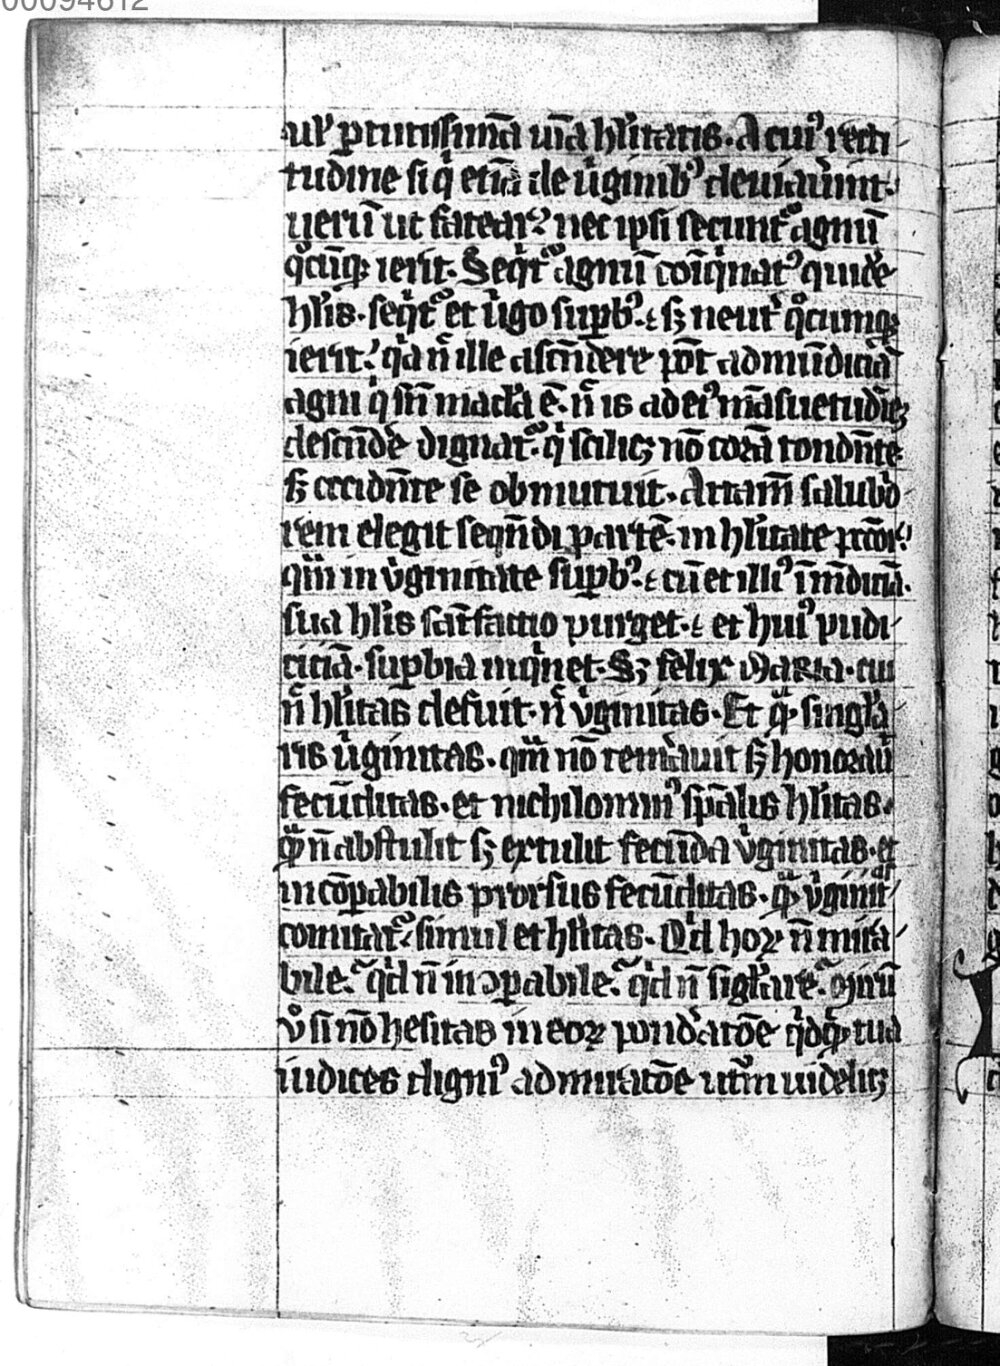 00094612
ul' ꝑtutissimā uiā hu̓litatis. A cui᷒ recti
tudine si q̇ etiā de u̓ginib᷒ deuiau̓int.
uerū ut fatear? nec ipsi secunt᷑ agnū
q̊cūq; ierit. Seqͥt᷑ agnū coīqͥnat᷒ quidē
hu̓lis. seqͥt᷑ et u̓go suꝑb᷒. sꝫ neut̓ q̊cumq;
ierit? qͥa n̄ ille ascēdere pōt ad mūdiciā
agni qͥ sn̄ macl̓a ē. n̄ is ad ei᷒ māsuetudinē
descēde̓ dignat᷑. qͥ scilicꝫ nō corā tondēte
sꝫ occidēte se obmutuit. Attam̄ salub̓o
rem elegit seqn̄di partē. in hu̓litate pctōr?
qm̄ in v̓ginitate suꝑb᷒. cū et illi᷒ īmūdiciā.
sua hu̓lis satisfactio purget. et hui᷒ pudi
ciciā. suꝑbia inqͥnet. Sꝫ felix MARIA. cui
n̄ hu̓litas defuit. n̄ v̓ginitas. Et qͣꝫ singl̓a
ris u̓ginitas. qm̄ nō tem̓auit sꝫ honorau̓
fecūditas. et nichilomin᷒ spālis hu̓litas.
qͣꝫ n̄ abstulit sꝫ extulit fecūda v̓ginitas. et
incōꝑabilis prorsus fecūditas. qͣꝫ v̓ginit᷑
comitat᷑ simul et hu̓litas. Qͥd hoꝝ n̄ mira
bile. qͥd n̄ incōꝑabile. qͥd n̄ singl̓are. Mirū
v̊ si nō hesitas in eoꝝ pond̓atōe qͥdqͣꝫ tua
iudices digni᷒ admiratōe utrū uidelicꝫ